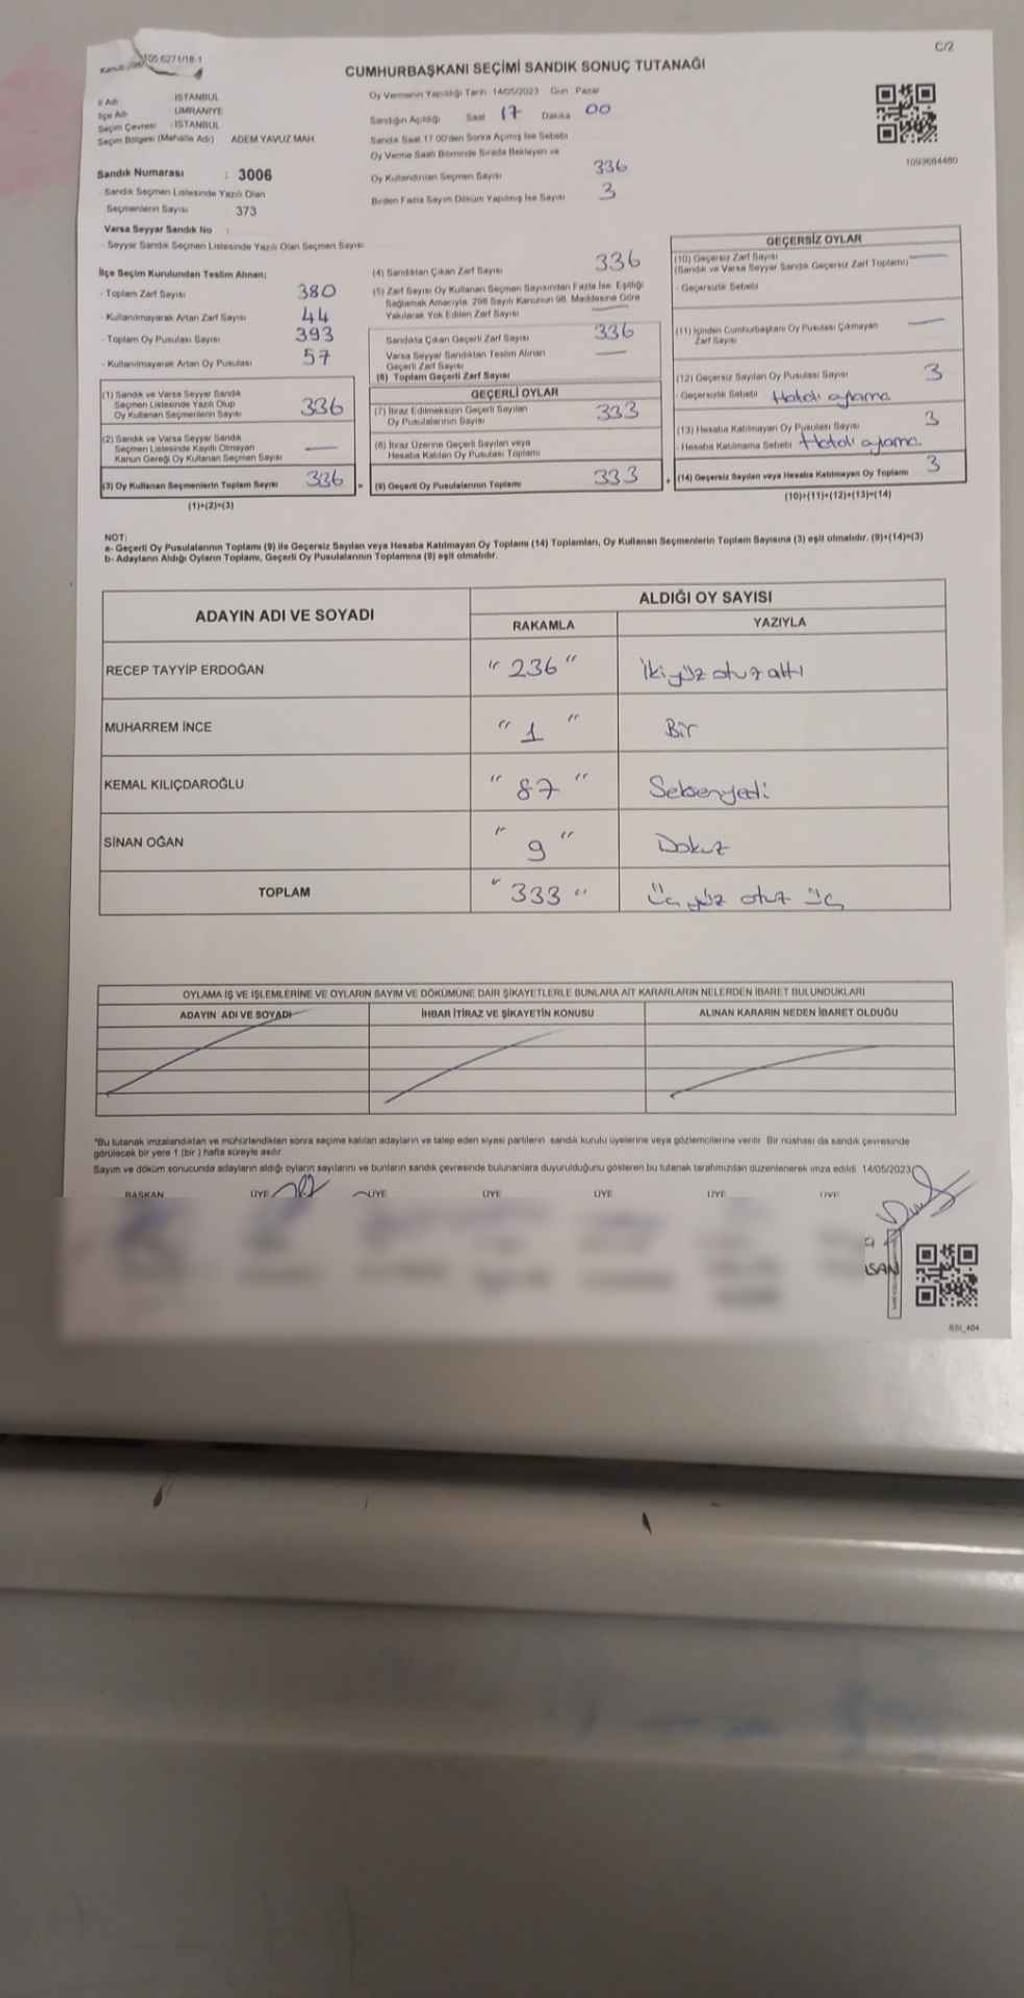 C/2
CUMHURBAŞKANI SEÇİMİ SANDIK SONUÇ TUTANAĞI
İl Adı : İSTANBUL
İlçe Adı : ÜMRANİYE
Seçim Çevresi : İSTANBUL
Seçim Bölgesi (Mahalle Adı) ADEM YAVUZ MAH.
Oy Vermenin Yapıldığı Tarih 14/05/2023 Gün Pazar
Sandığın Açıldığı Saat 17 Dakika 00
Sandık Saat 17.00'den Sonra Açılmış İse Sebebi
Oy Verme Saati Bitiminde Sırada Bekleyen ve
Oy Kullandırılan Seçmen Sayısı 336
Birden Fazla Sayım Döküm Yapılmış İse Sayısı 3
1093684480
Sandık Numarası : 3006
Sandık Seçmen Listesinde Yazılı Olan
Seçmenlerin Sayısı 373
Varsa Seyyar Sandık No :
- Seyyar Sandık Seçmen Listesinde Yazılı Olan Seçmen Sayısı
İlçe Seçim Kurulundan Teslim Alınan;
- Toplam Zarf Sayısı 380
- Kullanılmayarak Artan Zarf Sayısı 44
- Toplam Oy Pusulası Sayısı 393
- Kullanılmayarak Artan Oy Pusulası 57
(1) Sandık ve Varsa Seyyar Sandık
Seçmen Listesinde Yazılı Olup
Oy Kullanan Seçmenlerin Sayısı 336
(2) Sandık ve Varsa Seyyar Sandık
Seçmen Listesinde Kayıtlı Olmayan
Kanun Gereği Oy Kullanan Seçmen Sayısı —
(3) Oy Kullanan Seçmenlerin Toplam Sayısı 336
(1)+(2)=(3)
(4) Sandıktan Çıkan Zarf Sayısı 336
(5) Zarf Sayısı Oy Kullanan Seçmen Sayısından Fazla İse, Eşitliği
Sağlamak Amacıyla, 298 Sayılı Kanunun 98. Maddesine Göre
Yakılarak Yok Edilen Zarf Sayısı —
Sandıkta Çıkan Geçerli Zarf Sayısı 336
Varsa Seyyar Sandıktan Teslim Alınan
Geçerli Zarf Sayısı —
(6) Toplam Geçerli Zarf Sayısı
GEÇERLİ OYLAR
(7) İtiraz Edilmeksizin Geçerli Sayılan
Oy Pusulalarının Sayısı 333
(8) İtiraz Üzerine Geçerli Sayılan veya
Hesaba Katılan Oy Pusulası Toplamı
= (9) Geçerli Oy Pusulalarının Toplamı 333
GEÇERSİZ OYLAR
(10) Geçersiz Zarf Sayısı —
(Sandık ve Varsa Seyyar Sandık Geçersiz Zarf Toplamı)
- Geçersizlik Sebebi
(11) İçinden Cumhurbaşkanı Oy Pusulası Çıkmayan
Zarf Sayısı —
(12) Geçersiz Sayılan Oy Pusulası Sayısı 3
- Geçersizlik Sebebi Hatalı oylama
(13) Hesaba Katılmayan Oy Pusulası Sayısı 3
- Hesaba Katılmama Sebebi Hatalı oylama
+ (14) Geçersiz Sayılan veya Hesaba Katılmayan Oy Toplamı 3
(10)+(11)+(12)+(13)=(14)
NOT:
a- Geçerli Oy Pusulalarının Toplamı (9) ile Geçersiz Sayılan veya Hesaba Katılmayan Oy Toplamı (14) Toplamları, Oy Kullanan Seçmenlerin Toplam Sayısına (3) eşit olmalıdır. (9)+(14)=(3)
b- Adayların Aldığı Oyların Toplamı, Geçerli Oy Pusulalarının Toplamına (9) eşit olmalıdır.
ADAYIN ADI VE SOYADI
ALDIĞI OY SAYISI
RAKAMLA YAZIYLA
RECEP TAYYİP ERDOĞAN " 236 " İki yüz otuz altı
MUHARREM İNCE " 1 " Bir
KEMAL KILIÇDAROĞLU " 87 " Seksenyedi
SİNAN OĞAN " 9 " Dokuz
TOPLAM " 333 " Üç yüz otuz üç
OYLAMA İŞ VE İŞLEMLERİNE VE OYLARIN SAYIM VE DÖKÜMÜNE DAİR ŞİKAYETLERLE BUNLARA AİT KARARLARIN NELERDEN İBARET BULUNDUKLARI
ADAYIN ADI VE SOYADI İHBAR İTİRAZ VE ŞİKAYETİN KONUSU ALINAN KARARIN NEDEN İBARET OLDUĞU
*Bu tutanak imzalandıktan ve mühürlendikten sonra seçime katılan adayların ve talep eden siyasi partilerin sandık kurulu üyelerine veya gözlemcilerine verilir. Bir nüshası da sandık çevresinde
görülecek bir yere 1 (bir) hafta süreyle asılır.
Sayım ve döküm sonucunda adayların aldığı oyların sayılarını ve bunların sandık çevresinde bulunanlara duyurulduğunu gösteren bu tutanak tarafımızdan düzenlenerek imza edildi. 14/05/2023
BAŞKAN ÜYE ÜYE ÜYE ÜYE ÜYE ÜYE